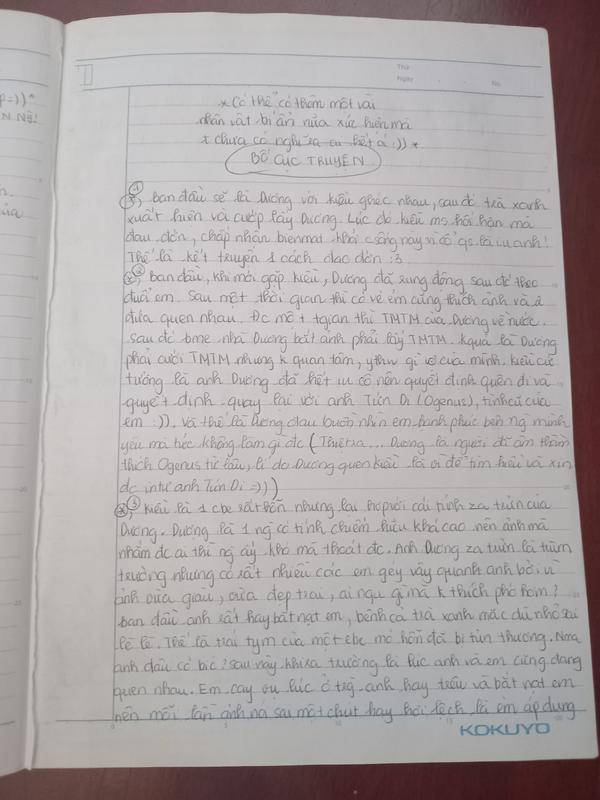 p=))*
N NG!
Thứ
Ngày
No.
* Có thể có thêm một vài
nhân vật bí ẩn nữa xuất hiện mà
* chưa có nghĩ ra cụ thể :)) *
BỐ CỤC TRUYỆN
1, Ban đầu sẽ là Dương với Kiều ghéc nhau, sau đó trà xanh
xuất hiện và cướp lấy Dương. Lúc đó Kiều ms hối hận mà
đau đớn, chấp nhận bienmat khỏi csống này vì cô gs là iu anh!
Thế là kết truyện 1 cách đau đớn :3
2, Ban đầu, khi mới gặp Kiều, Dương đã rung động sau đó theo
đuổi em. Sau một thời gian thì có vẻ em cũng thích ảnh và 2
đứa quen nhau. Đc một tgian thì TMTM của Dương về nước.
Sau đó bme nhà Dương bắt ảnh phải lấy TMTM. Kquả là Dương
phải cưới TMTM nhưng k quan tâm, gì vợ của mình. Kiều cứ
tưởng là anh Dương đã hết iu cô nên quyết định quên đi và
quyết định quay lại với anh Tún Di (Ogenus), tình cũ của
em :)). Và thế là Dương đau buồn nhìn em hạnh phúc bên ng mình
yêu mà không làm gì đc (Thiệt ra... Dương là người đã âm thầm
thích Ogenus từ lâu, lí do Dương quen Kiều là vì để tìm hiểu và xin
đc in4 từ anh Tún Di =)))
3, Kiều là 1 cbe rất hiền nhưng lại hợp với cái tính za trưởn của
Dương. Dương là 1 ng có tính chiếm hữu khá cao nên ảnh mà
nhắm đc ai thì ng ấy khó mà thoát đc. Anh Dương za trưởn là trùm
trường nhưng có rất nhiều các em gêy vây quanh anh bởi vì
ảnh vừa giàu, vừa đẹp trai, ai ngu gì mà k thích phớ hơm?
Ban đầu anh rất hay bắt nạt em, bênh cả trà xanh mặc dù nhỏ sai
lè lè. Thế là trái tym của một cbe mơ hồn đã bị tủn thương. Nma
anh đâu có bíc? Sau này khi ra trường là lúc anh và em cũng đang
quen nhau. Em cay vụ lúc ở trg anh hay trêu và bắt nạt em
nên mỗi lần ảnh ná sai một chút hay hơi lệch là em áp dụng
KOKUYO